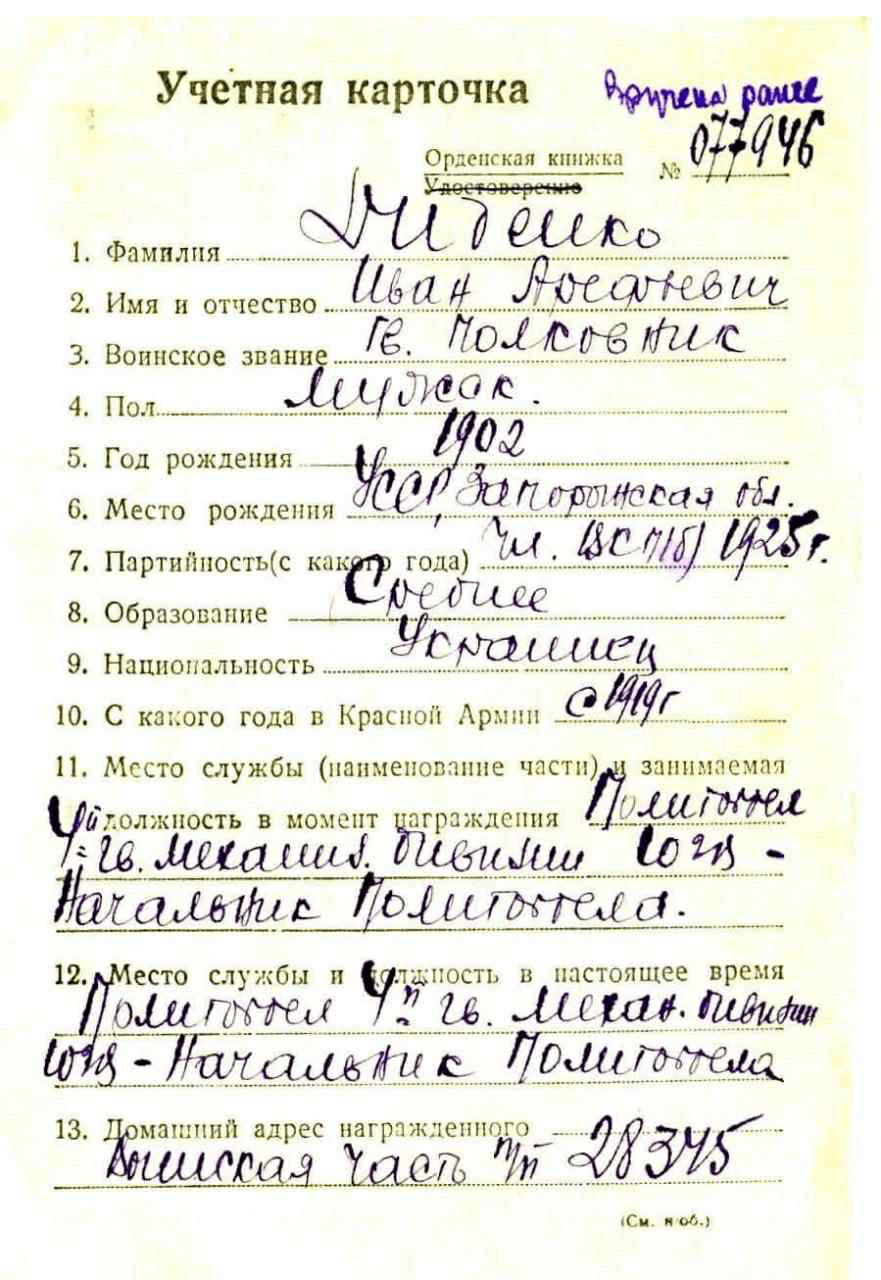 Учетная карточка
Вручена ранее
Орденская книжка № 077946
Удостоверение
1. Фамилия Диденко
2. Имя и отчество Иван Арсеньевич
3. Воинское звание Гв. Полковник
4. Пол Мужск.
5. Год рождения 1902
6. Место рождения УССР, Запорожская обл.
7. Партийность(с какого года) Чл. ВКП(б) 1925 г.
8. Образование Среднее
9. Национальность Украинец
10. С какого года в Красной Армии с 1919 г
11. Место службы (наименование части) и занимаемая
должность в момент награждения Политотдел
4й гв. механиз. дивизии ЮГВ -
Начальник Политотдела.
12. Место службы и должность в настоящее время
Политотдел 4й гв. механ. дивизии
ЮГВ - Начальник Политотдела
13. Домашний адрес награжденного
Воинская часть п/п 28345
(См. н/об.)